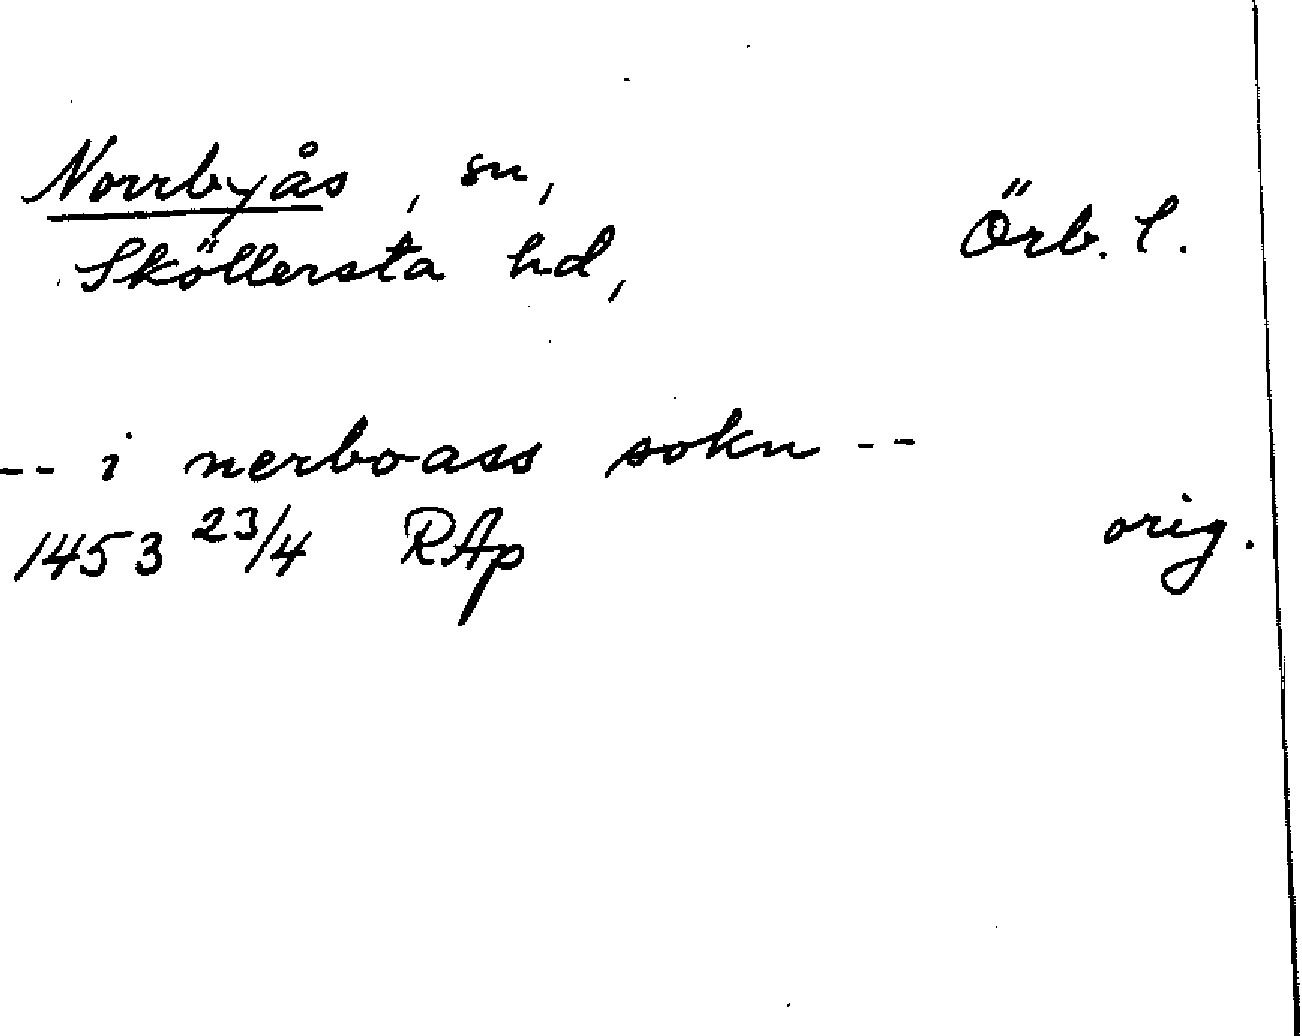 Norrbyås, sn,
Örb. l.
Sköllersta hd,
-- i nerboass sokn --
1453 23/4 RAp
orig.